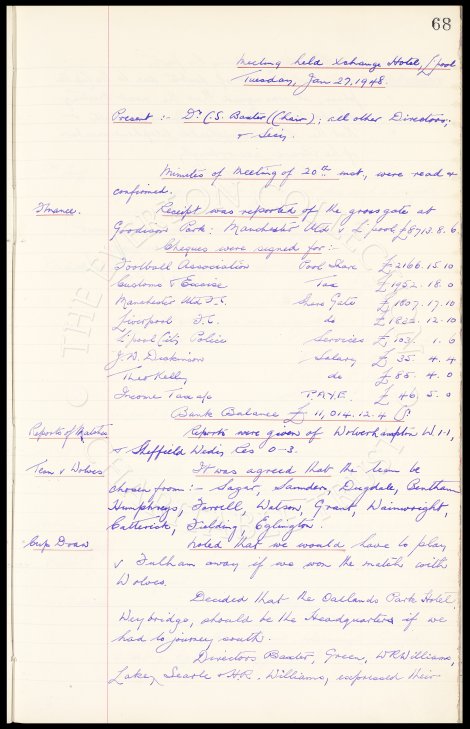 68
Meeting held Xchange Hotel, L'pool
Tuesday, Jan 27. 1948.
Present :- Dr C.S. Baxter (Chair); all other Directors;
& Secy.
Minutes of Meeting of 20th inst, were read &
confirmed.
Finance. Receipt was reported of the gross gate at
Goodison Park: Manchester Utd v L'pool £8713. 8. 6.
Cheques were signed for:-
Football Association Pool Share £2166. 15. 10
Customs & Excise Tax £1952. 18. 0
Manchester Utd F.C. Share Gate £1807. 17. 10
Liverpool F.C. do £1832. 12. 10
L'pool City Police Services £103. 1. 6
J.W. Dickinson Salary £35. 4. 4
Theo Kelly do £85. 4. 0
Income Tax a/c P.A.Y.E. £46. 5. 0
Bank Balance £11,014. 12. 4
Reports of Matches Reports were given of Wolverhampton W 1-1,
& Sheffield Wedn, Res 0-3.
Team v Wolves It was agreed that the team be
chosen from :- Sagar, Saunders, Dugdale, Bentham
Humphreys, Farrell, Watson, Grant, Wainwright,
Catterick, Fielding, Eglington.
Cup Draw Noted that we would have to play
v Fulham away if we won the match with
Wolves.
Decided that the Oatlands Park Hotel,
Weybridge, should be the Headquarters if we
had to journey south.
Directors Baxter, Green, W.R. Williams,
Lake, Searle & H.R. Williams, expressed their